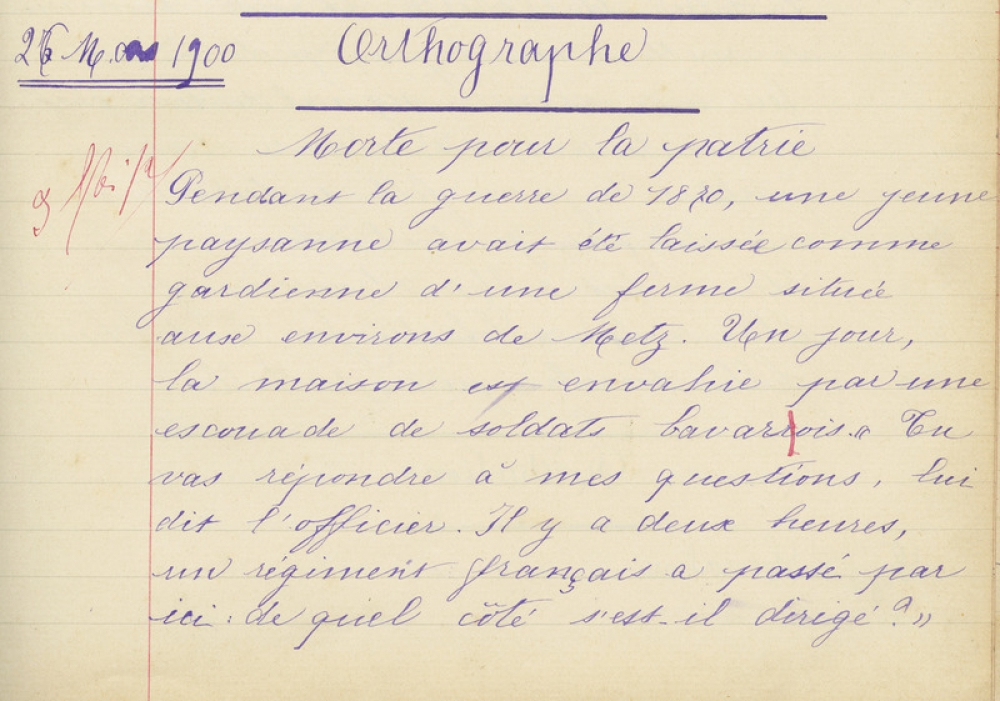 Mars 1900
Orthographe
Morte pour la patrie
Pendant la guerre de 1870, une jeune
paysanne avait été laissée comme
gardienne d'une ferme située
aux environs de Metz. Un jour,
la maison est envahie par une
escouade de soldats bavarrois. « Tu
vas répondre à mes questions, lui
dit l'officier. Il y a deux heures,
un régiment français a passé par
ici : de quel côté s'est-il dirigé ? »